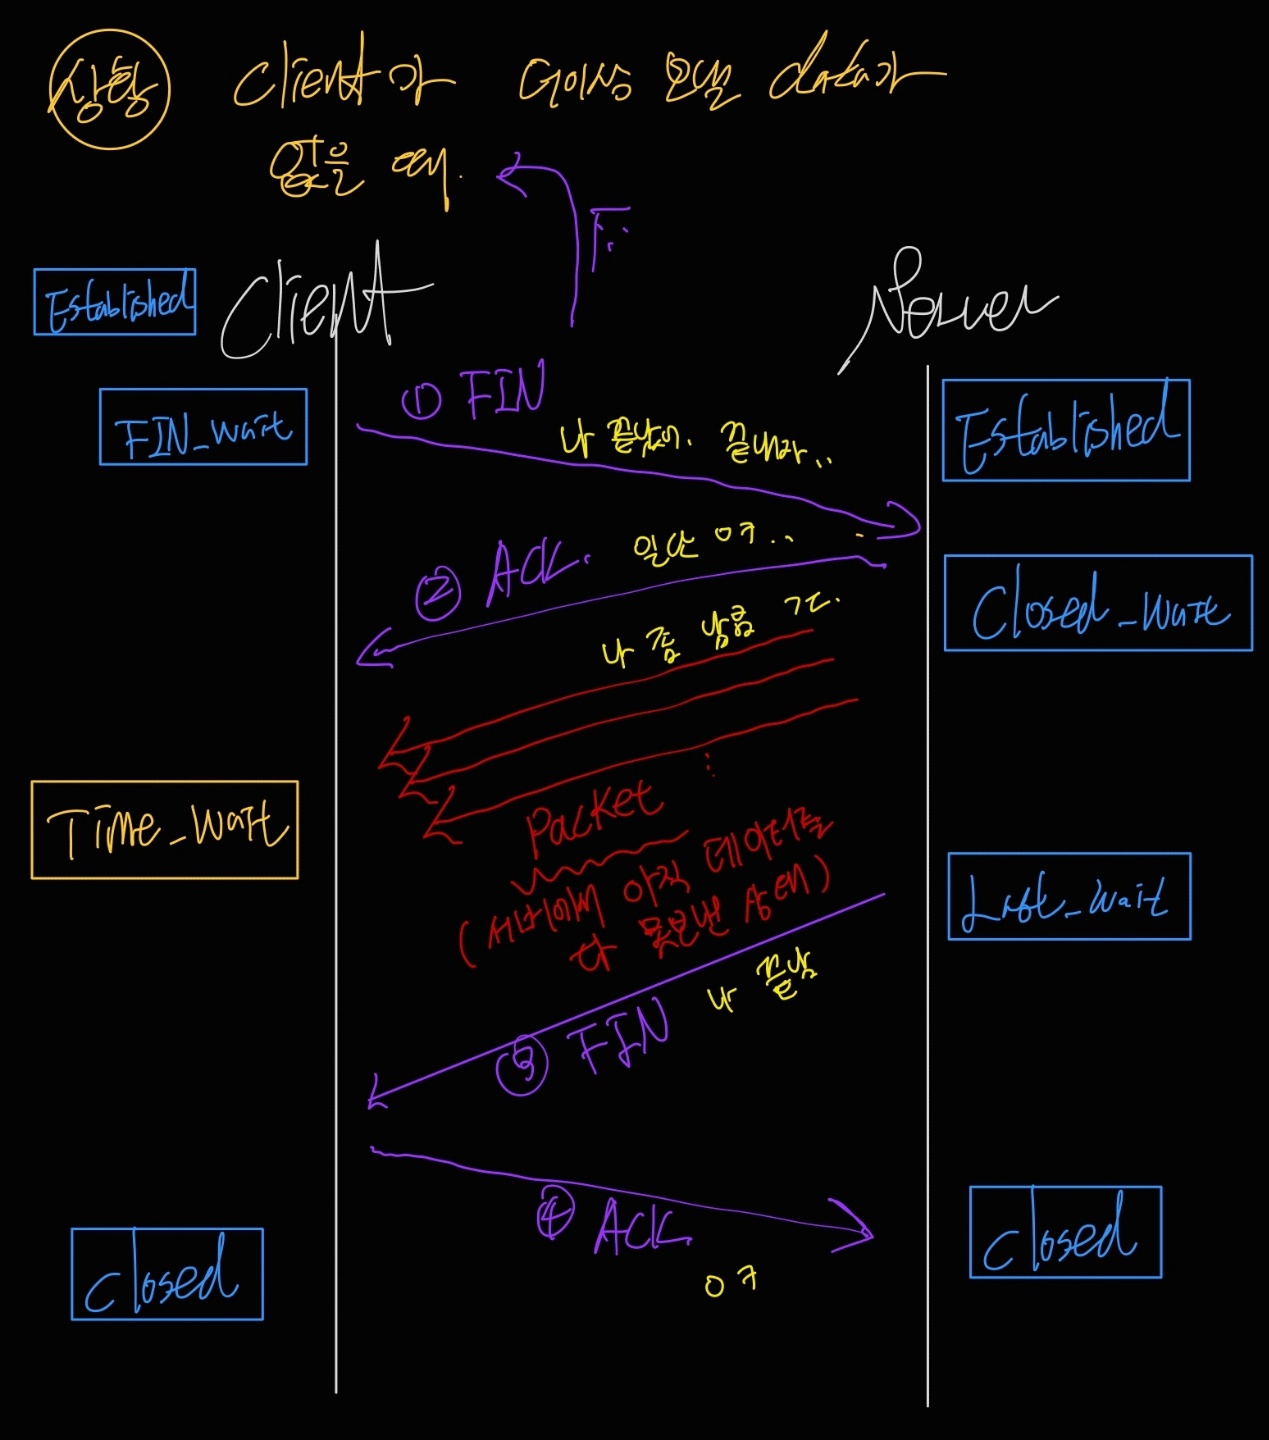 상황 Client가 더이상 보낼 data가
없을 때.
Established Client Server
① FIN
FIN_wait 나 끝났어. 끝내자.. Established
② ACK. 일단 ㅇㅋ..
Closed_wait
나 좀 남음 ㄱㄷ.
Packet
Time_wait
(서버에서 아직 데이터를
다 못보낸 상태)
Last_wait
나 끝남
③ FIN
④ ACK
ㅇㅋ
Closed Closed